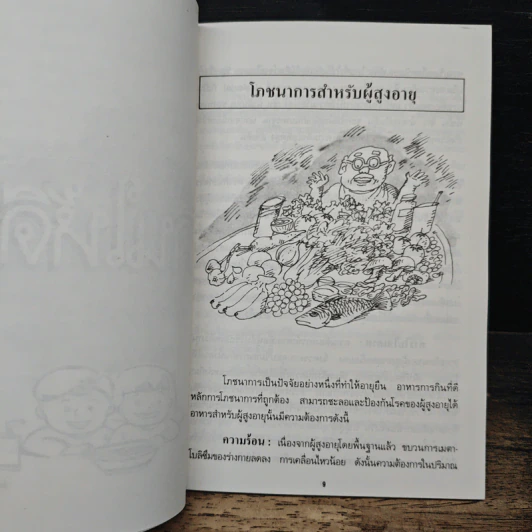 โภชนาการสำหรับผู้สูงอายุ
โภชนาการเป็นปัจจัยอย่างหนึ่งที่ทำให้อายุยืน อาหารการกินที่ดี
หลักการโภชนาการที่ถูกต้อง สามารถชะลอและป้องกันโรคของผู้สูงอายุได้
อาหารสำหรับผู้สูงอายุนั้นมีความต้องการดังนี้
ความร้อน : เนื่องจากผู้สูงอายุโดยพื้นฐานแล้ว ขบวนการเมตา-
โบลิซึ่มของร่างกายลดลง การเคลื่อนไหวน้อย ดังนั้นความต้องการในปริมาณ